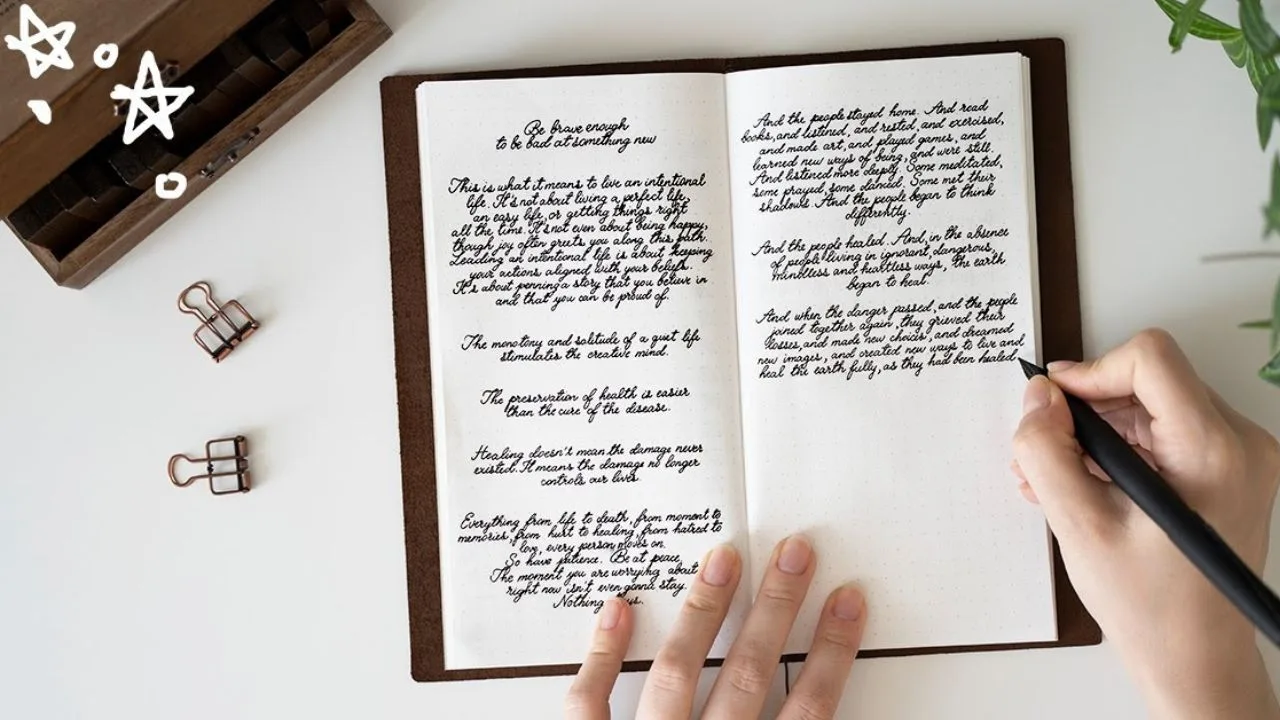 Be brave enough
to be bad at something new
This is what it means to live an intentional
life. It's not about living a perfect life,
an easy life, or getting things right
all the time. It's not even about being happy,
though joy often greets you along this path.
Leading an intentional life is about keeping
your actions aligned with your beliefs.
It's about penning a story that you believe in
and that you can be proud of.
The monotony and solitude of a quiet life
stimulates the creative mind.
The preservation of health is easier
than the cure of the disease.
Healing doesn't mean the damage never
existed. It means the damage no longer
controls our lives.
Everything from life to death, from moment to
memories, from hurt to healing, from hatred to
love, every person moves on.
So have patience. Be at peace.
The moment you are worrying about
right now isn't even gonna stay.
Nothing
And the people stayed home. And read
books, and listened, and rested, and exercised,
and made art, and played games, and
learned new ways of being, and were still.
And listened more deeply. Some meditated,
some prayed, some danced. Some met their
shadows. And the people began to think
differently.
And the people healed. And, in the absence
of people living in ignorant, dangerous,
mindless and heartless ways, the earth
began to heal.
And when the danger passed, and the people
joined together again, they grieved their
losses, and made new choices, and dreamed
new images, and created new ways to live and
heal the earth fully, as they had been healed